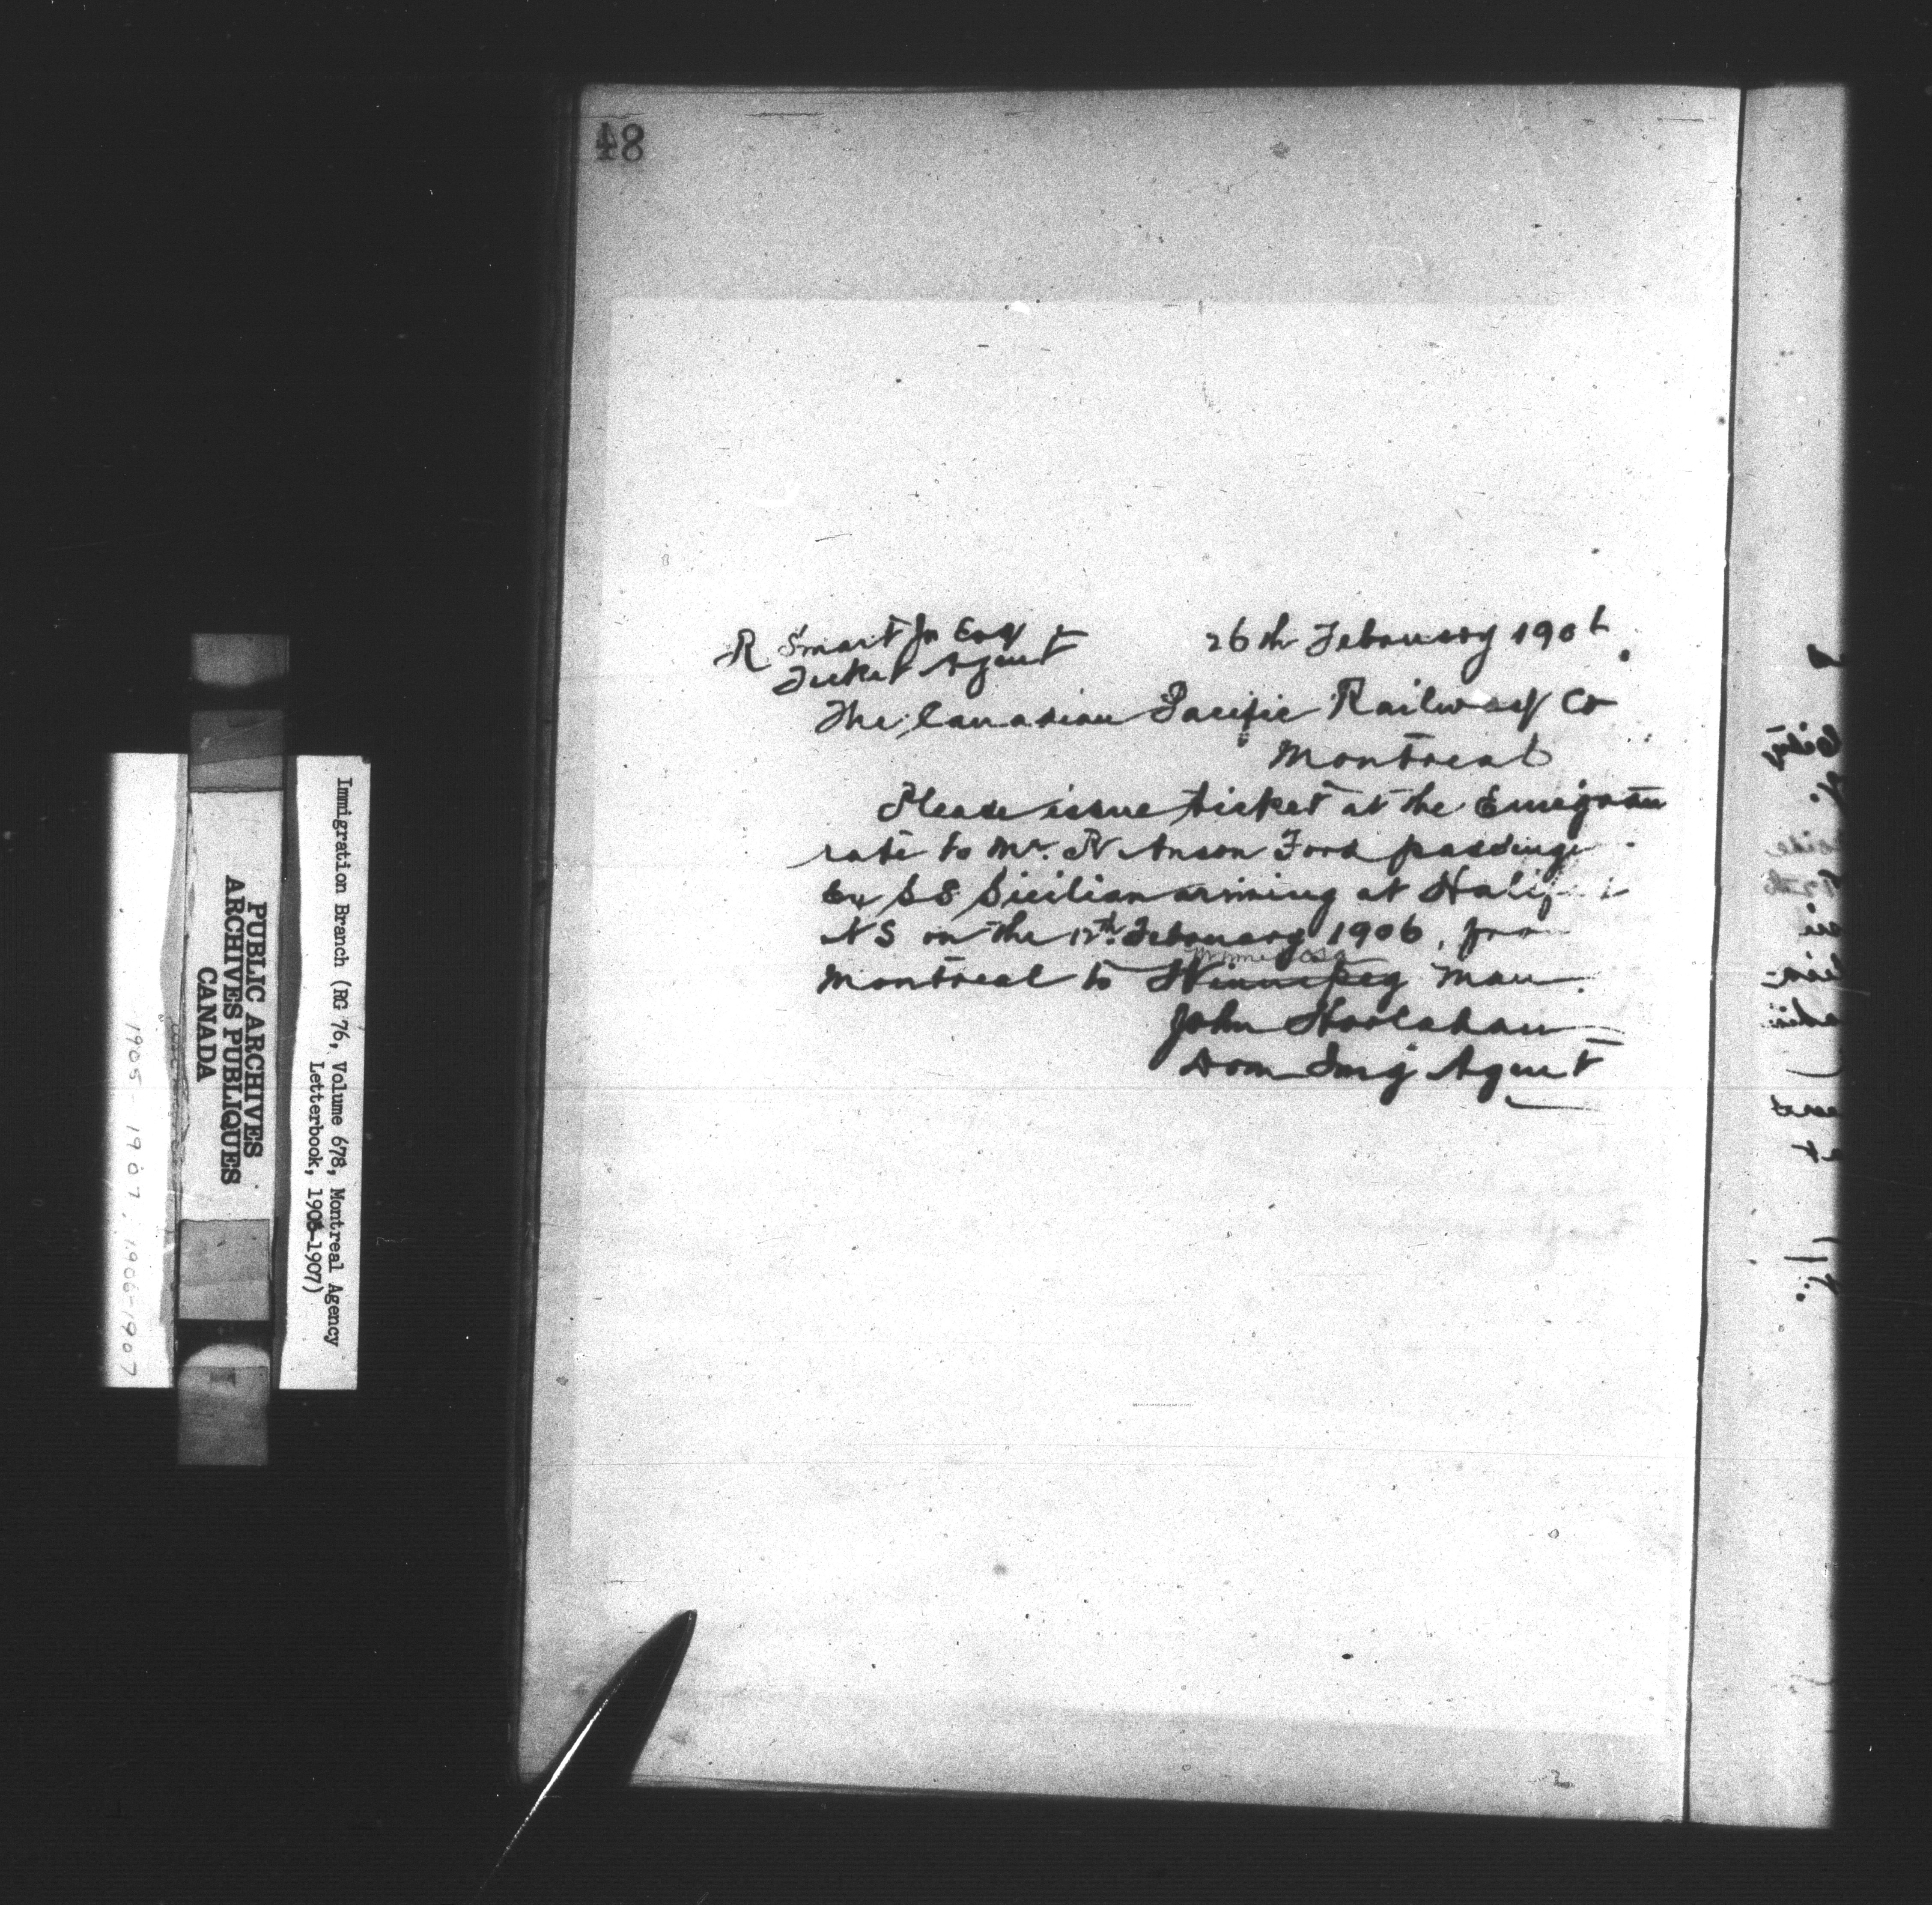 48
R Smart Jn Esq
Ticket Agent
26th February 1906.
The Canadian Pacific Railway Co
Montreal
Please issue ticket at the Emigran
rate to Mr. N Anson Ford passenge
Ex SS Sicilian arriving at Halif
NS on the 12th February 1906, from
Minnedosa
Montreal to Winnipeg Man.
John Hoolahan
Dom Img Agent
Immigration Branch (RG 76, Volume 678, Montreal Agency
Letterbook, 1905-1907)
PUBLIC ARCHIVES
ARCHIVES PUBLIQUES
CANADA
1905-1907, 1906-1907